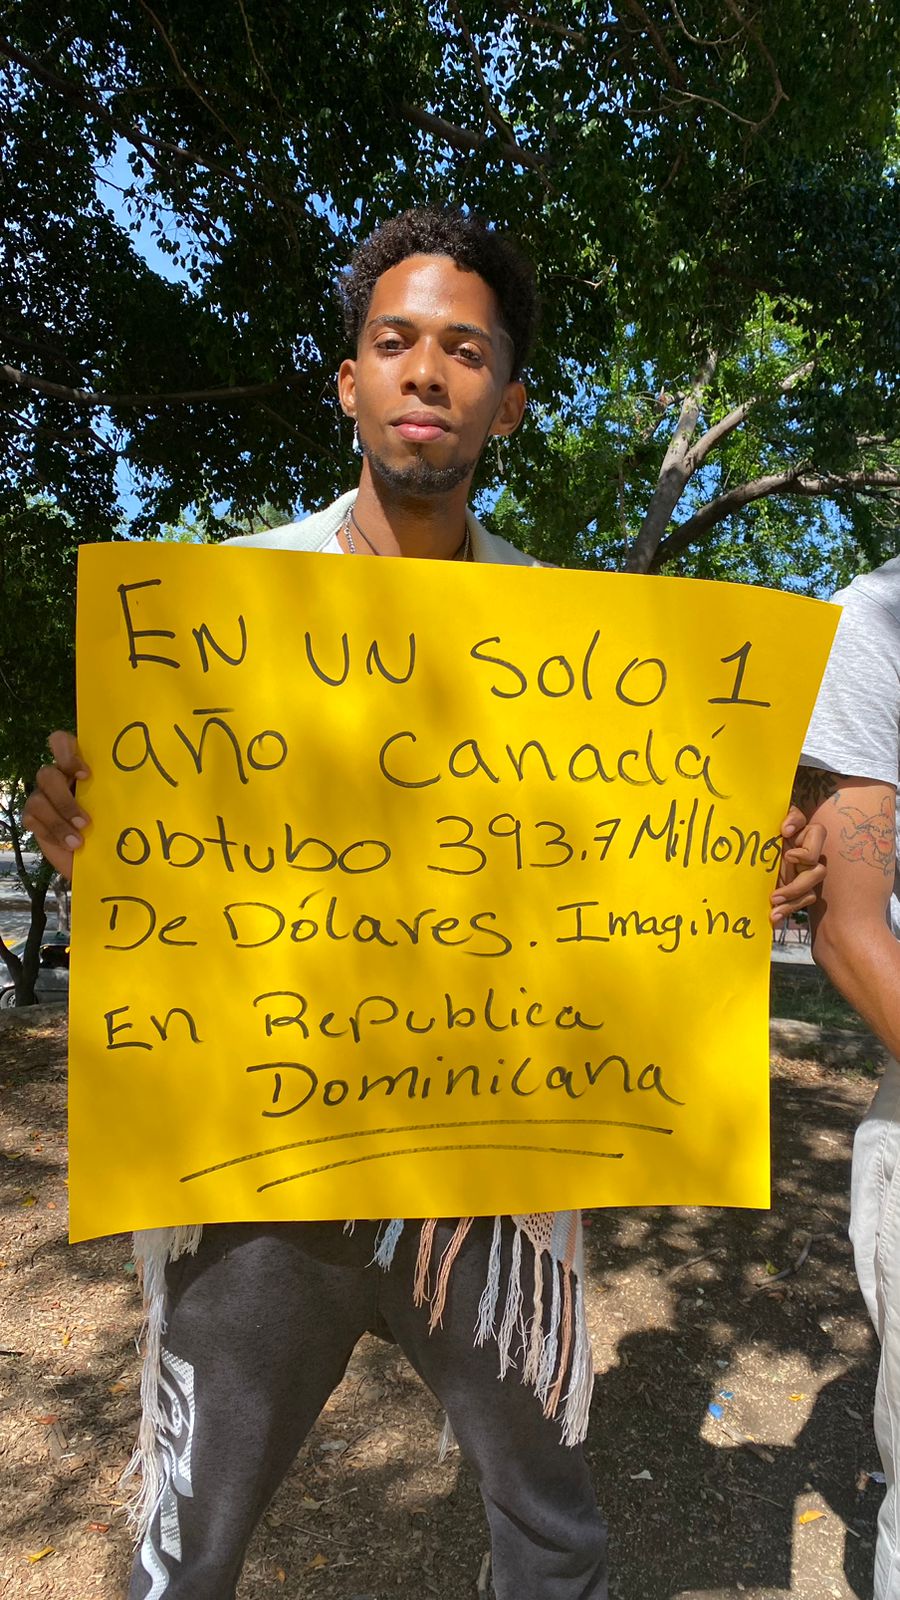 En un solo 1
año Canadá
obtubo 393.7 Millones
De Dólares. Imagina
En Republica
Dominicana